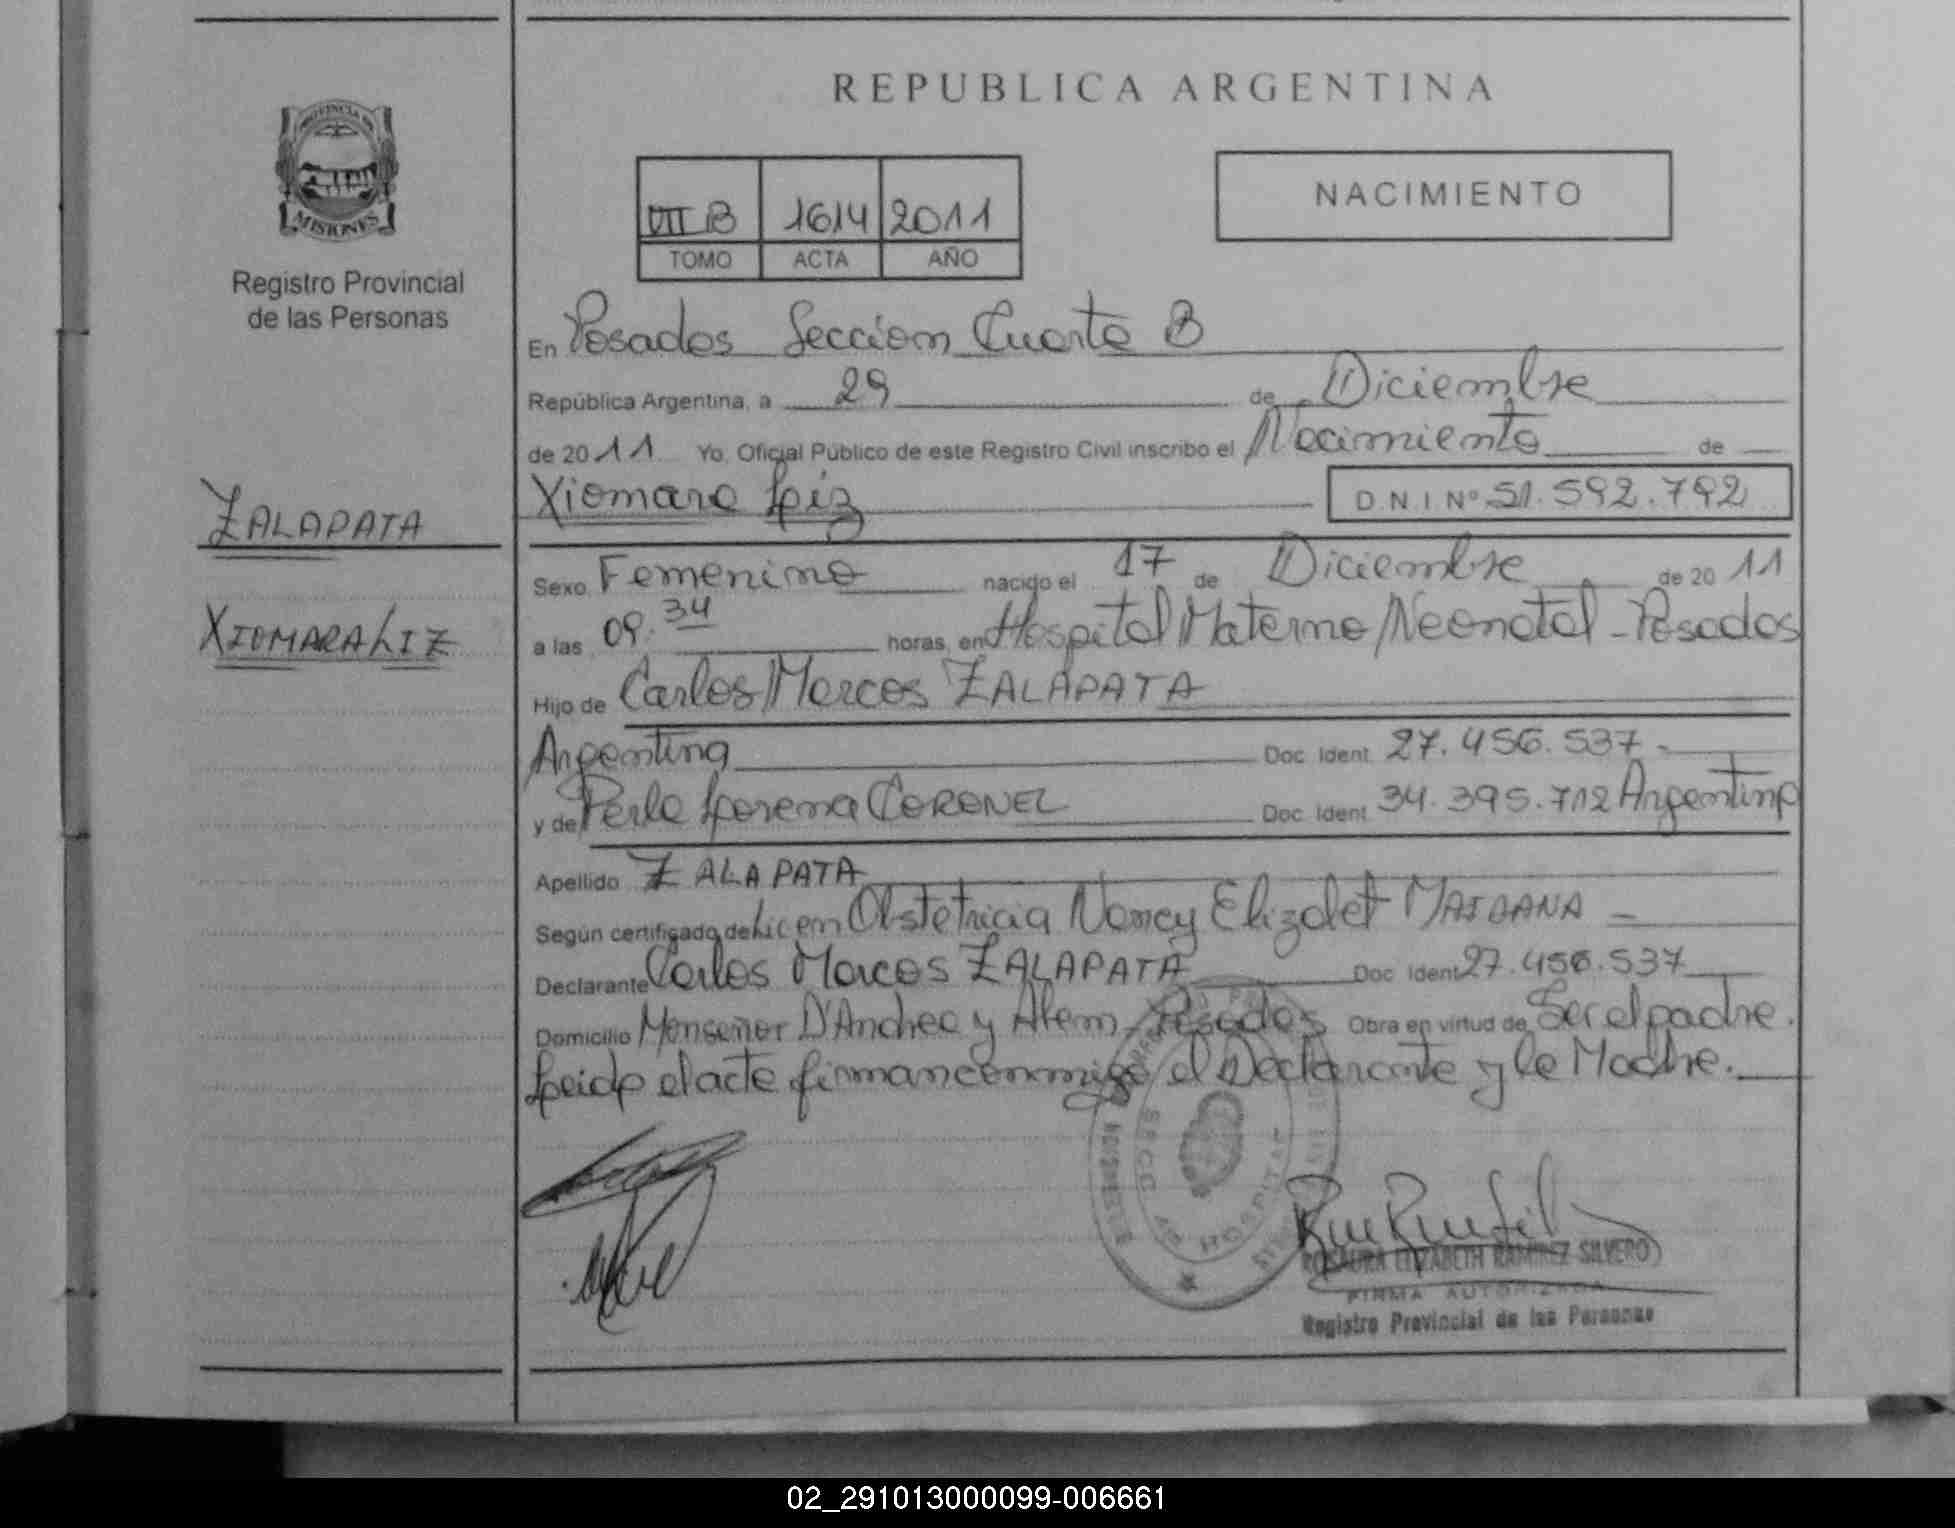 REPUBLICA ARGENTINA
PROVINCIA DE
MISIONES
Registro Provincial
de las Personas
VII B 1614 2011
TOMO ACTA AÑO
NACIMIENTO
En Posadas Sección Cuarta B
República Argentina, a 29 de Diciembre
de 2011 Yo, Oficial Público de este Registro Civil inscribo el Nacimiento de
Xiomara Liz D.N.I. Nº 51.592.792
ZALAPATA
XIOMARA LIZ
Sexo Femenino nacido el 17 de Diciembre de 2011
a las 09.34 horas, en Hospital Materno Neonatal - Posadas
Hijo de Carlos Marcos ZALAPATA
Argentina Doc. Ident. 27.456.537.-
y de Perla Lorena CORONEL Doc. Ident. 34.395.712 Argentina
Apellido ZALAPATA
Según certificado de Lic en Obstetricia Nancy Elizabet MAIDANA -
Declarante Carlos Marcos ZALAPATA Doc. Ident. 27.456.537
Domicilio Monseñor D'Andrea y Alem - Posadas Obra en virtud de Ser el padre.
Leida el acta firman conmigo el Declarante y la Madre.
SECC. 4B HOSPITAL
MISIONES
ROSAURA ELIZABETH RAMIREZ SILVERO
FIRMA AUTORIZADA
Registro Provincial de las Personas
02_291013000099-006661